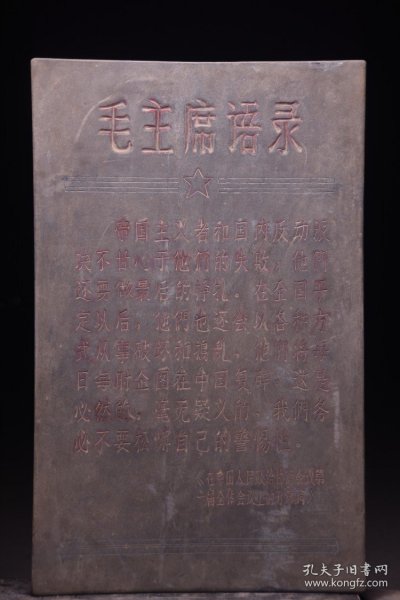 毛主席语录
帝国主义者和国内反动派
决不甘心于他们的失败,他们
还要做最后的挣扎。在全国平
定以后,他們也还会以各种方
式从事破坏和捣乱,他們将每
日每时企图在中国复辟。这是
必然的,毫无疑义的,我們务
必不要松懈自己的警惕性。
《在中国人民政治协商会议第
一届全体会议上的开幕词》
孔夫子旧书网
www.kongfz.com